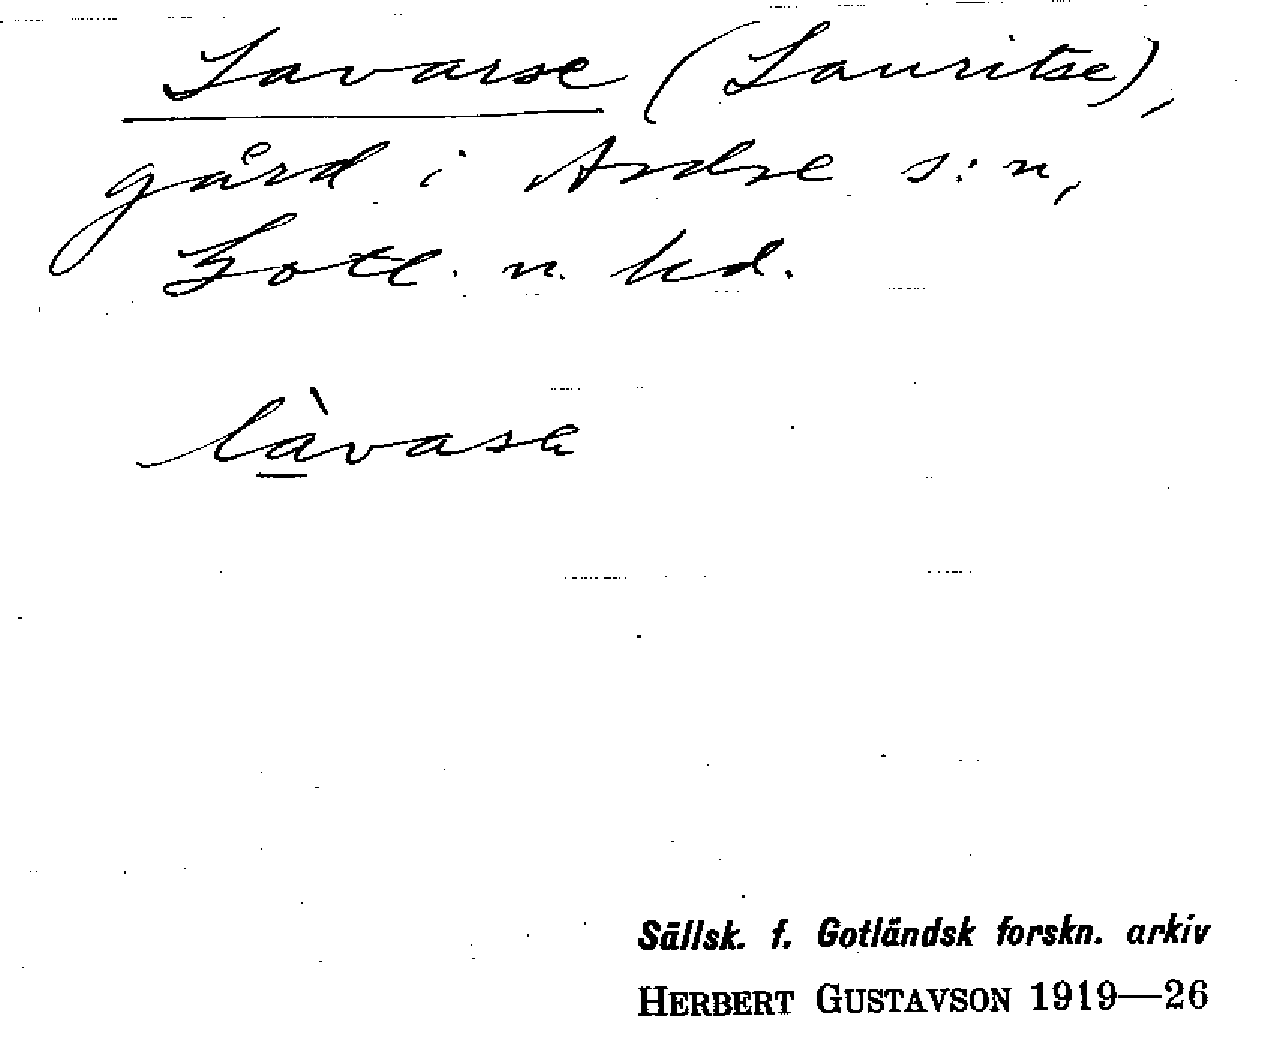 Lavarse (Lauritse),
gård i Ardre s:n,
Gotl. n. hd.
làvasa
Sällsk. f. Gotländsk forskn. arkiv
HERBERT GUSTAVSON 1919—26